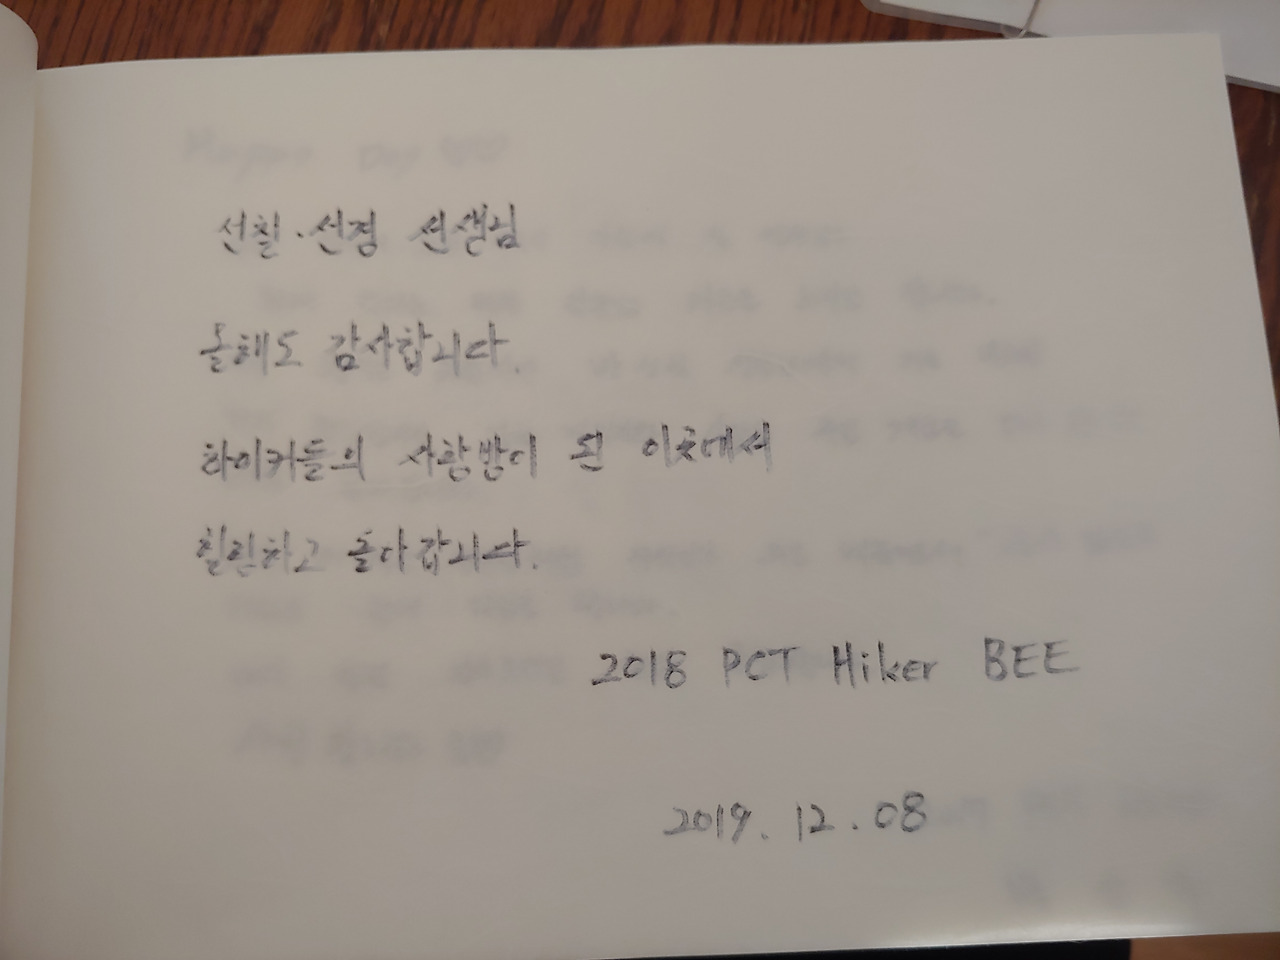 선칠·선경 선생님
올해도 감사합니다.
하이커들의 사랑방이 된 이곳에서
힐링하고 돌아갑니다.
2018 PCT Hiker BEE
2019. 12. 08